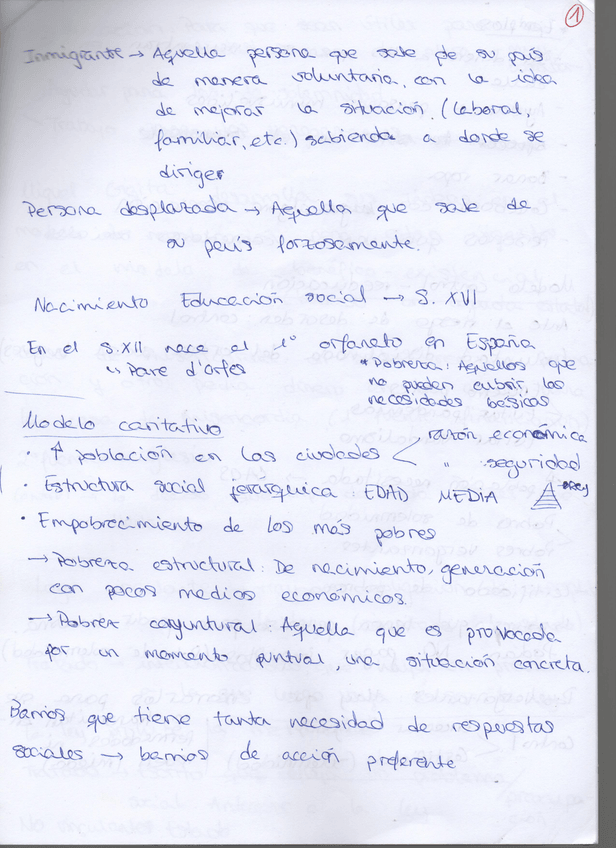 1
Inmigrante → Aquella persona que sale de su país
de manera voluntaria, con la idea
de mejorar la situación. (laboral,
familiar, etc.) sabiendo a donde se
dirigen
Persona desplazada → Aquella que sale de
su país forzosamente.
Nacimiento Educación social → S. XVI
En el S.XII nace el 1º orfaneto en España
" Pare d'orfes
* Pobreza: Aquellos que
no pueden cubrir las
necesidades básicas
Modelo caritativo
↑ población en las ciudades < razón económica
" seguridad
· Estructura social jerarquica EDAD MEDIA rey
· Empobrecimiento de los más pobres
→ Pobreza estructural: De nacimiento, generación
con pocos medios económicos.
→ Pobrez coyuntural Aquella que es provocada
por un momento puntual, una situación concreta.
Barrios que tiene tanta necesidad de respuestas
sociales → barrios de acción preferente